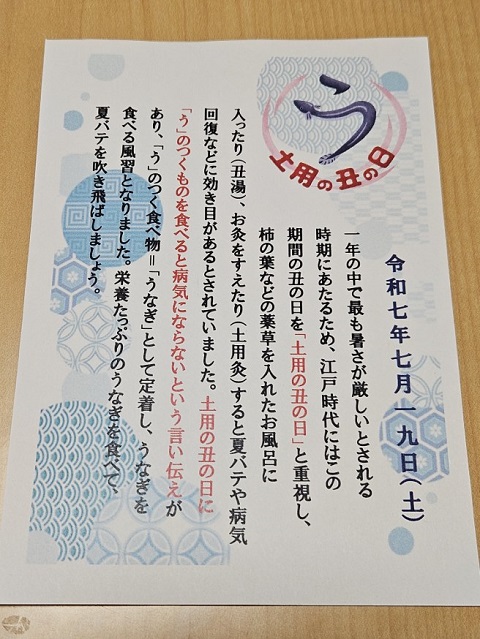 う
土用の丑の日
令和七年七月一九日（土）
一年の中で最も暑さが厳しいとされる
時期にあたるため、江戸時代にはこの
期間の丑の日を「土用の丑の日」と重視し、
柿の葉などの薬草を入れたお風呂に
入ったり（丑湯）、お灸をすえたり（土用灸）すると夏バテや病気
回復などに効き目があるとされていました。土用の丑の日に
「う」のつくものを食べると病気にならないという言い伝えが
あり、「う」のつく食べ物＝「うなぎ」として定着し、うなぎを
食べる風習となりました。栄養たっぷりのうなぎを食べて、
夏バテを吹き飛ばしましょう。